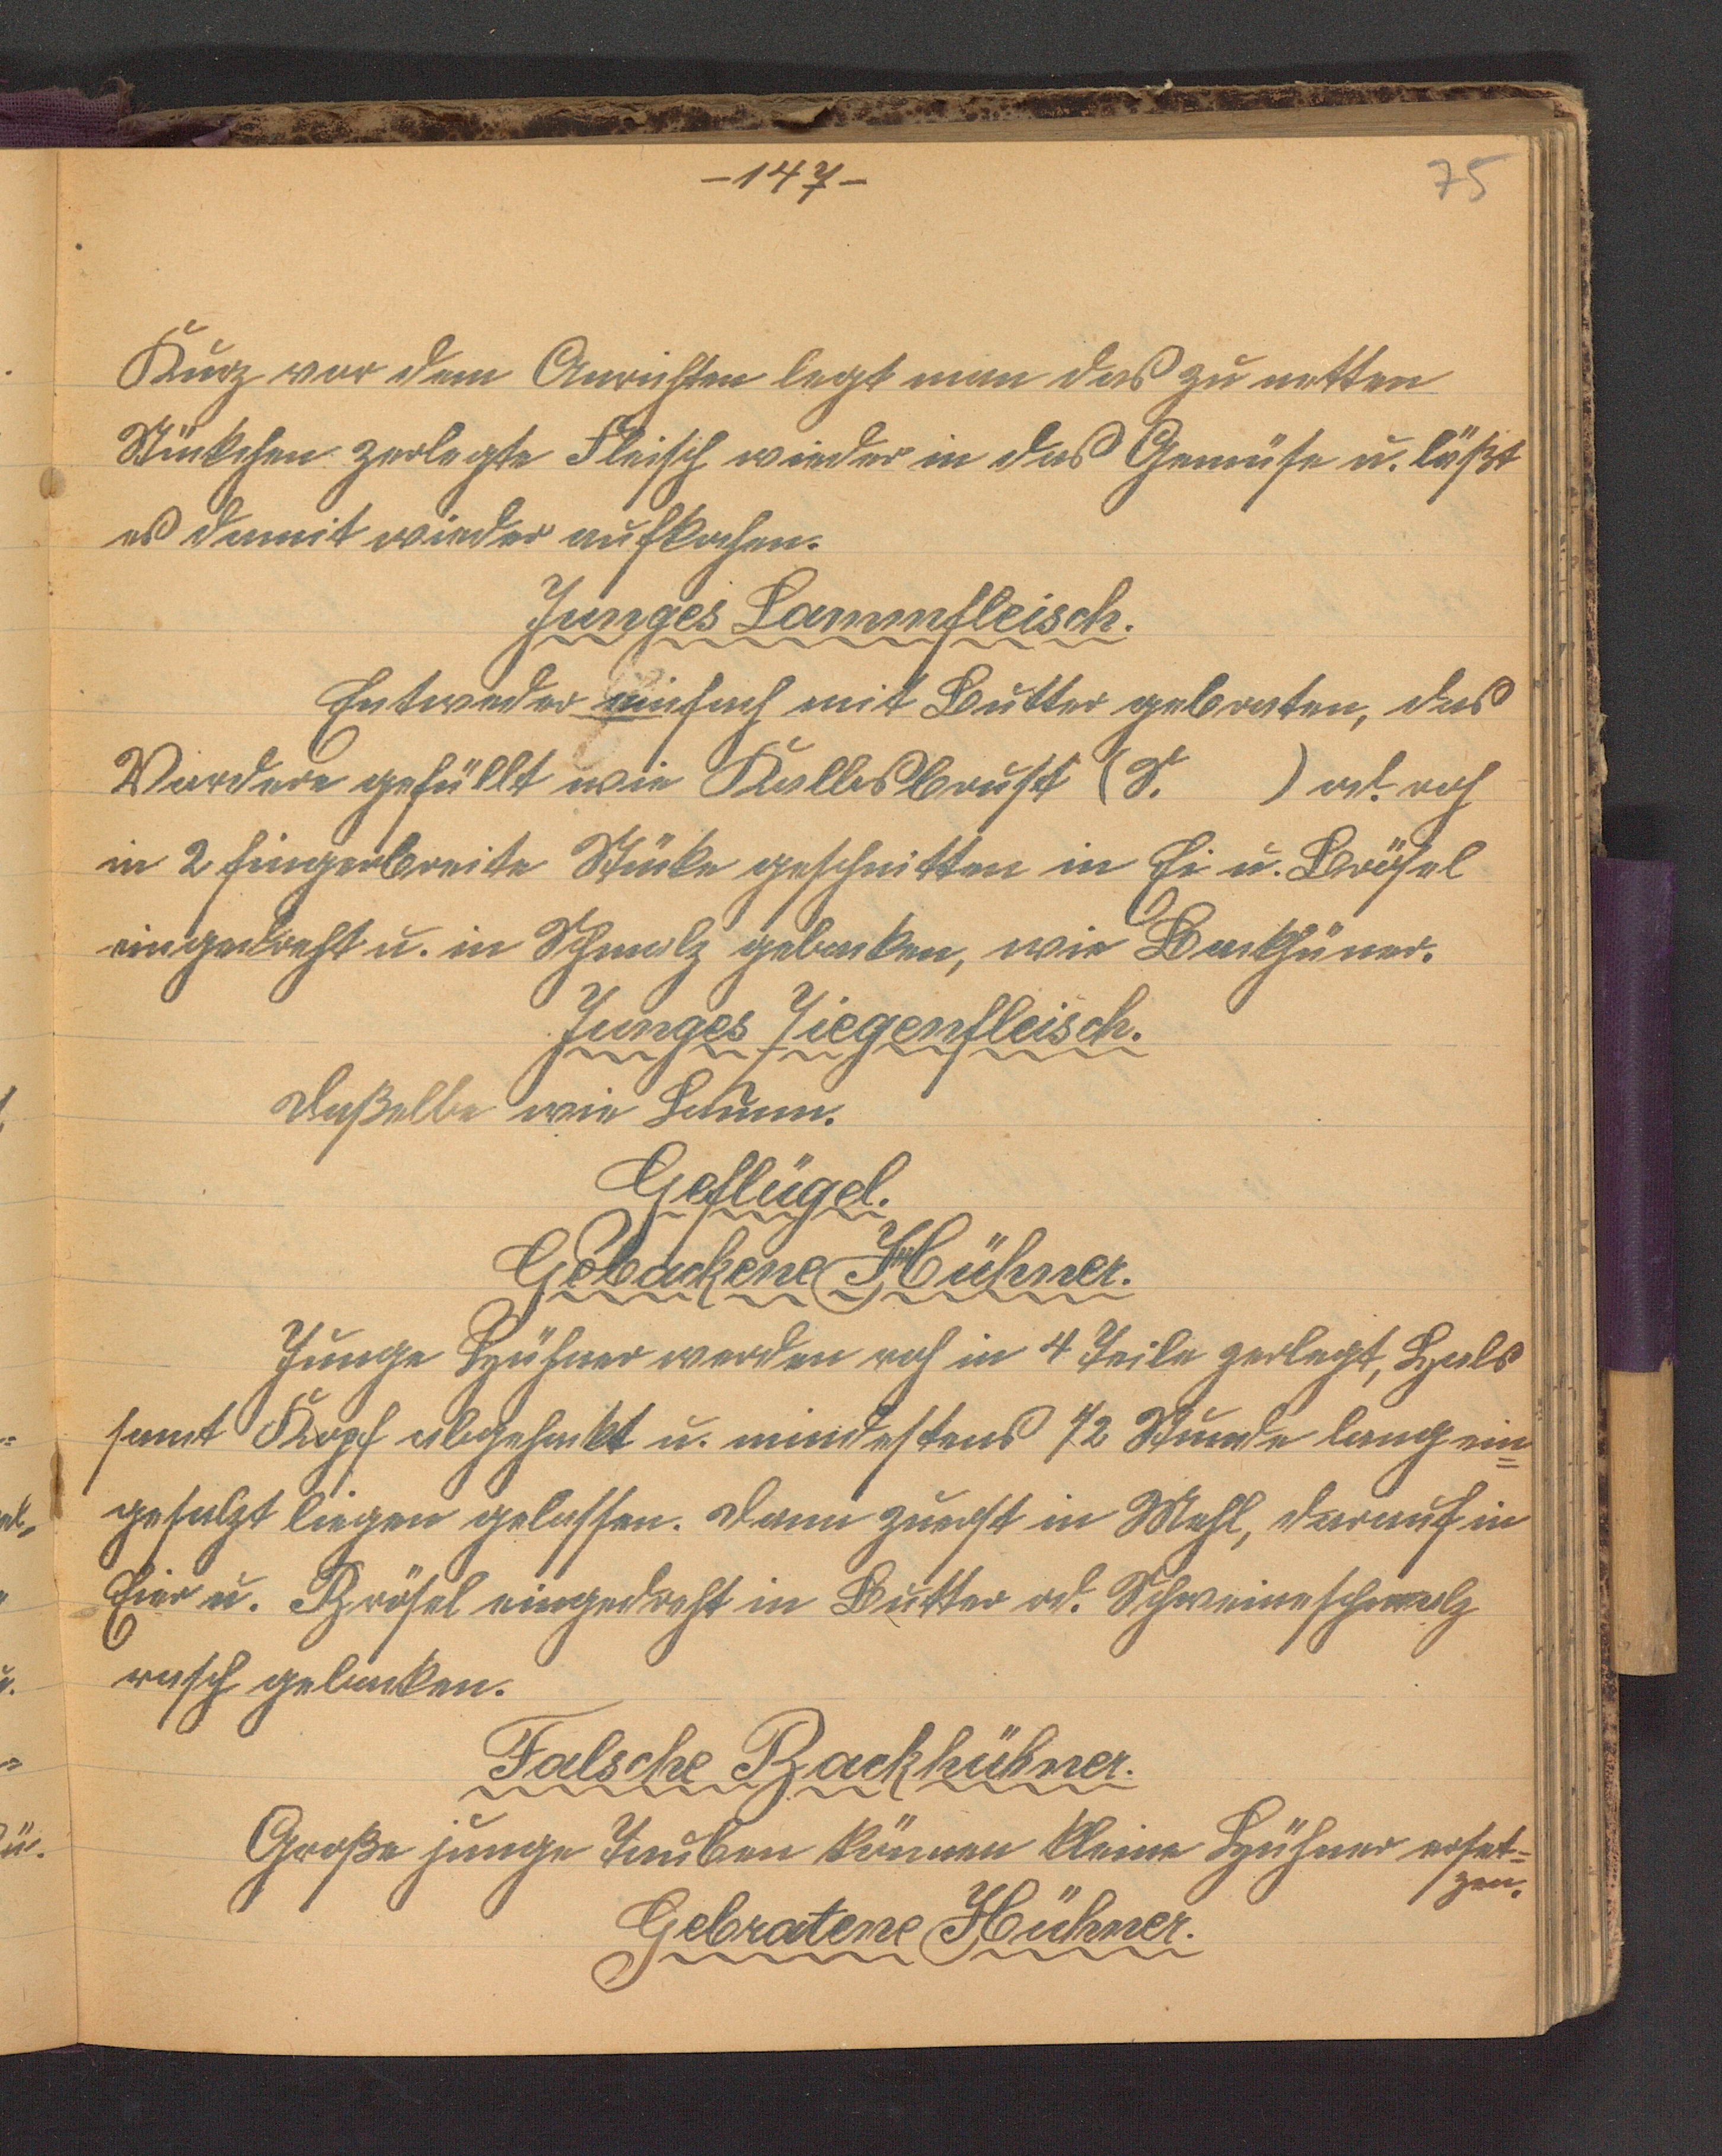 -147-
75
Kurz vor dem Anrichten legt man das zu netten
Stückchen zerlegte Fleisch wieder in das Gemüse u. läßt
es damit wieder aufkochen.
Junges Lammfleisch.
Entweder einfach mit Butter gebraten, das
Vordere gefüllt wie Kalbsbrust (S. ) od. roh
in 2 fingerbreite Stücke geschnitten in Ei u. Brösel
eingedreht u. in Schmalz gebacken, wie Backhüner.
Junges Ziegenfleisch.
Daßelbe wie Lamm.
Geflügel.
Gebackene Hühner.
Junge Hühner werden roh in 4 Teile zerlegt, Hals
samt Kopf abgehackt u. mindestens 1/2 Stunde lang ein=
gesalzt liegen gelassen. Dann zuerst in Mehl, darauf in
Eier u. Brösel eingedreht in Butter od. Schweineschmalz
rasch gebacken.
Falsche Backhühner.
Große junge Tauben können kleine Hühner erset=
zen.
Gebratene Hühner.